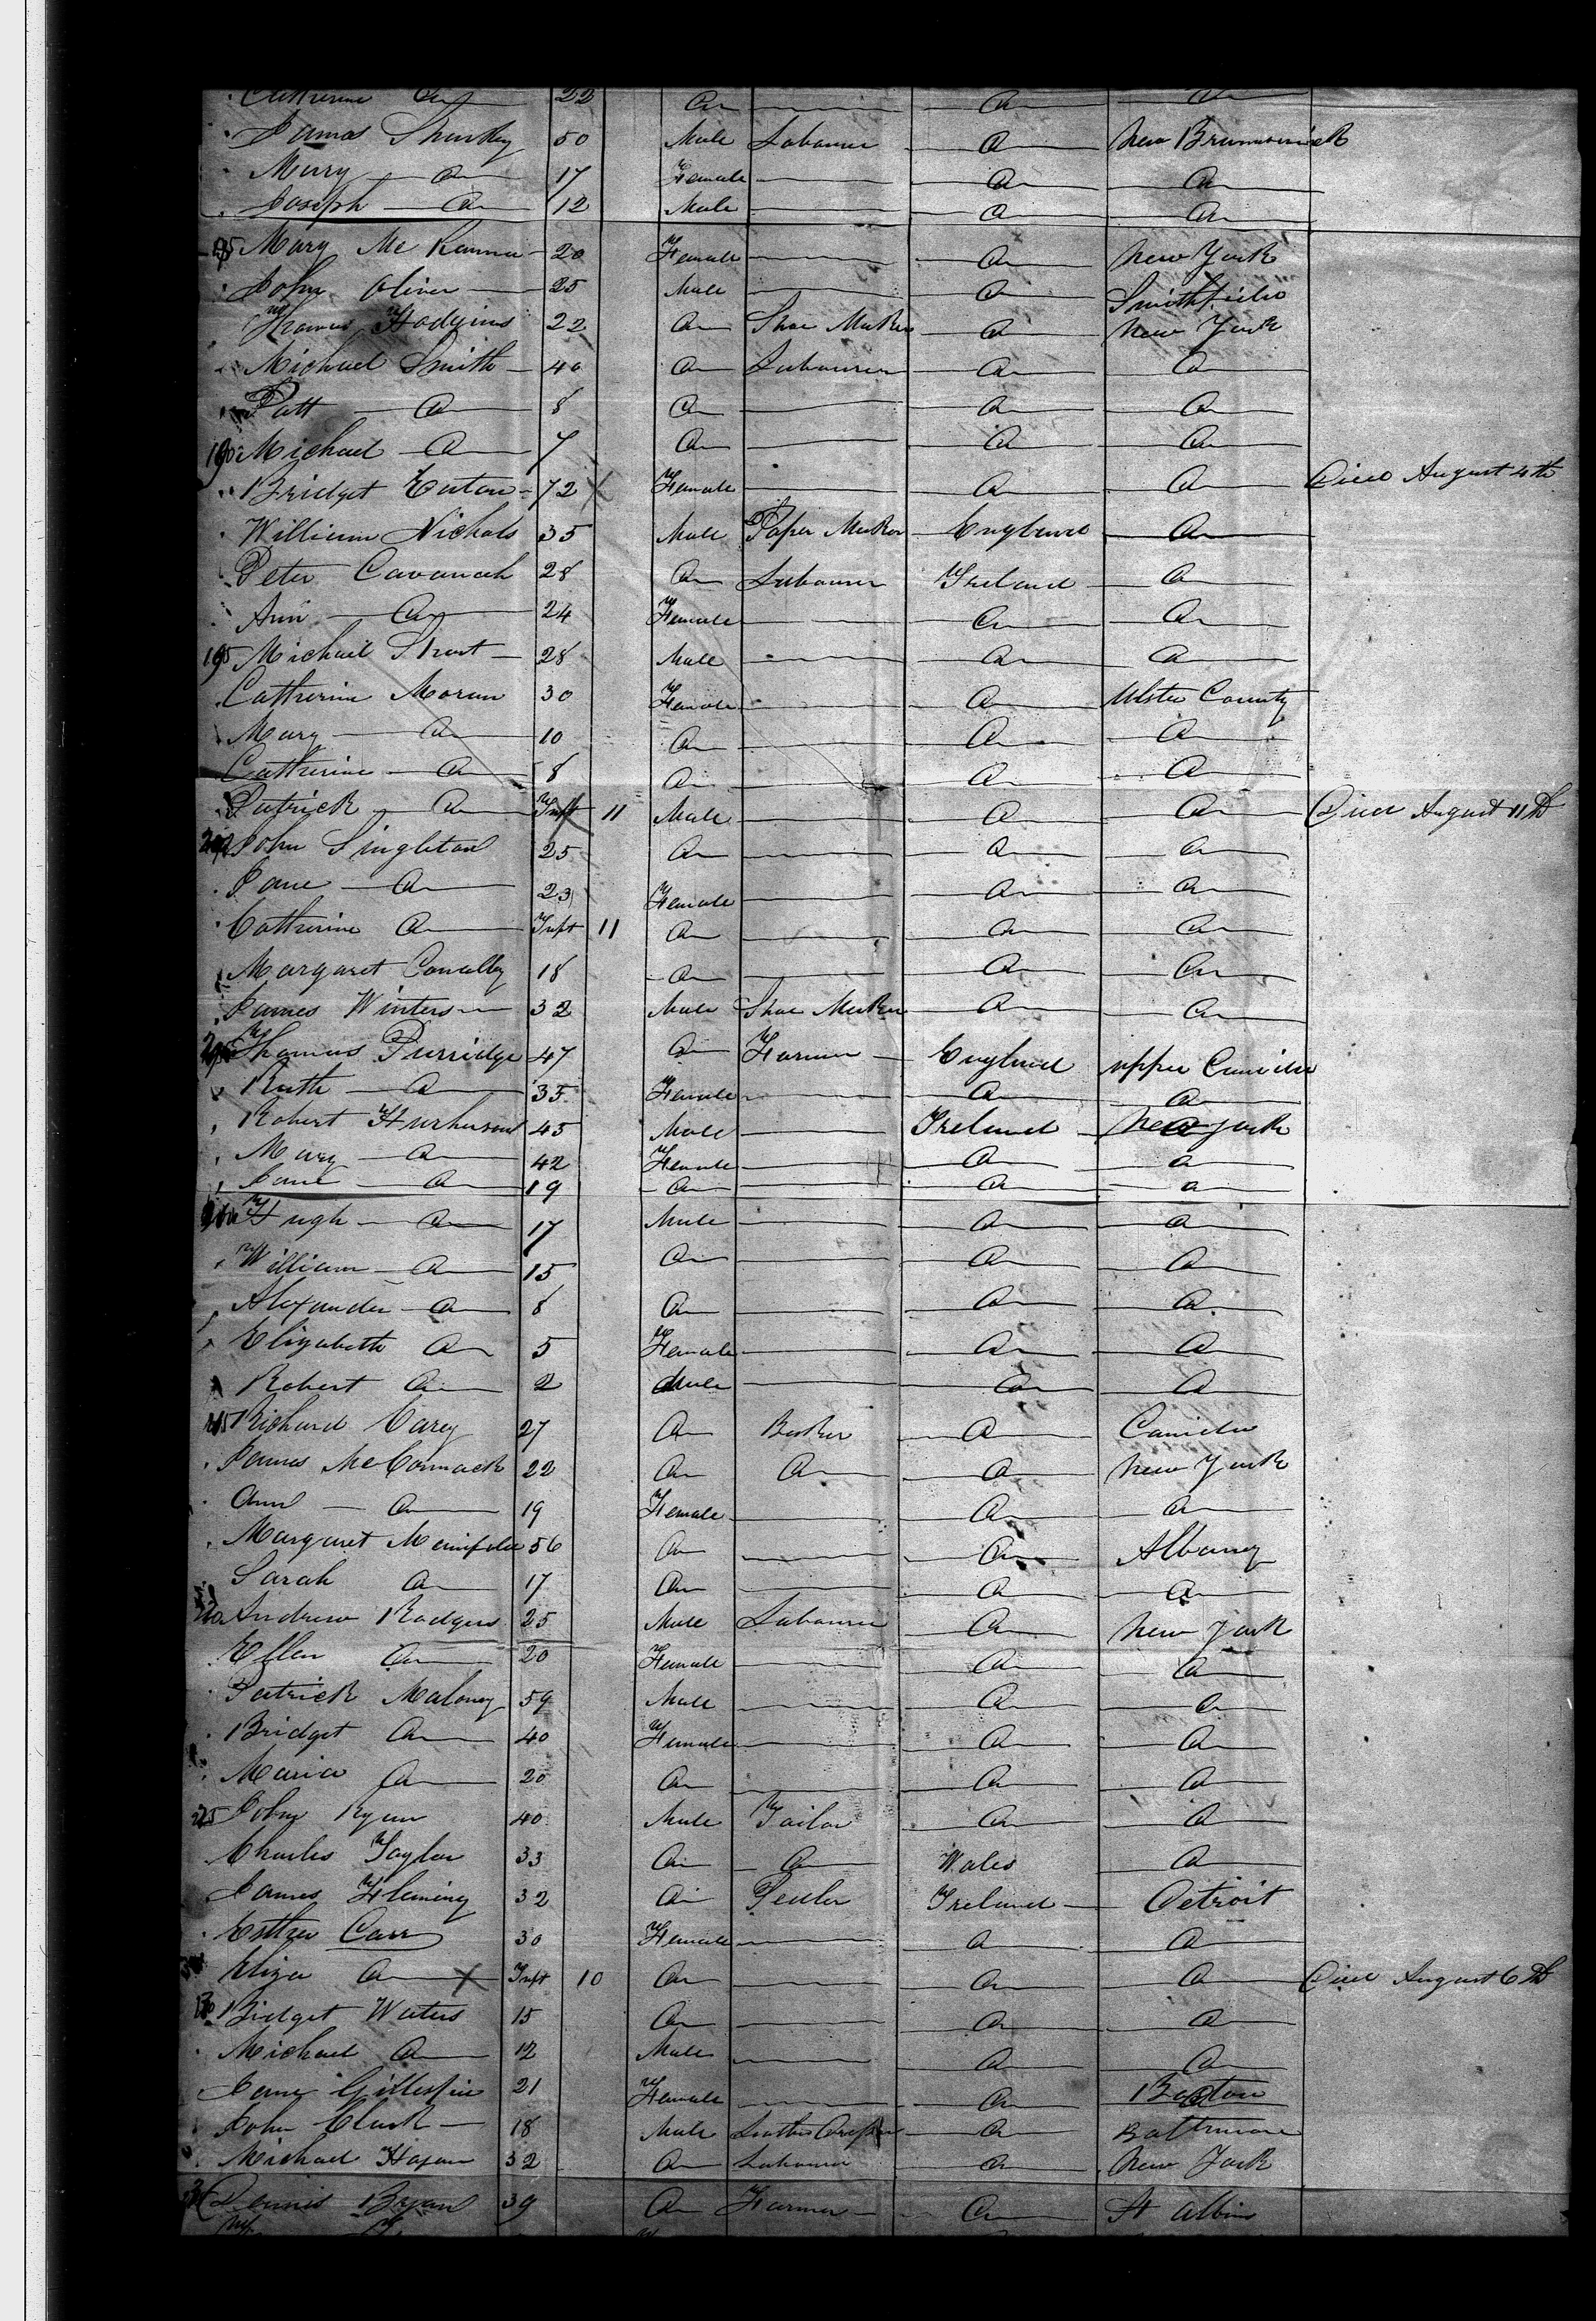 Catherine Do 22 Do Do Do
James Sharkey 50 Male Labourer Do New Brunswick
Mary Do 17 Female Do Do
Joseph Do 12 Male Do Do
185 Mary McKanna 20 Female Do New York
John Oliver 25 Male Do Smithfield
Thomas Hodgins 22 Do Shoe Maker Do New York
Michael Smith 40 Do Labourer Do Do
Patt Do 8 Do Do Do
190 Michael Do 7 Do Do Do
Bridget Eaton 72 Female Do Do Died August 4th
William Nichols 35 Male Paper Maker England Do
Peter Cavanah 28 Do Labourer Ireland Do
Ann Do 24 Female Do Do
195 Michael 28 Male Do Do
Catherine Moran 30 Female Do Ulster County
Mary Do 10 Do Do Do
Catherine Do 8 Do Do Do
Patrick Do Inft 11 Male Do Do Died August 11th
200 John Singleton 25 Do Do Do
Jane Do 23 Female Do Do
Catherine Do Inft 11 Do Do Do
Margaret Conolley 18 Do Do Do
James Winters 32 Male Shoe Maker Do Do
205 Thomas Purridge 47 Do Farmer England upper Canada
Ruth Do 35 Female Do Do
Robert 45 Male Ireland New York
Mary Do 42 Female Do Do
Jane Do 19 Do Do Do
210 Hugh Do 17 Male Do Do
William Do 15 Do Do Do
Alexander Do 8 Do Do Do
Elizabeth Do 5 Female Do Do
Robert Do 2 Male Do Do
215 Richard Carey 27 Do Baker Do Canada
James McCormack 22 Do Do Do New York
Ann Do 19 Female Do Do
Margaret 56 Do Do Albany
Sarah Do 17 Do Do Do
220 Andrew Rodgers 25 Male Labourer Do New York
Ellen Do 20 Female Do Do
Patrick Maloney 59 Male Do Do
Bridget Do 40 Female Do Do
Maria Do 20 Do Do Do
225 John Ryan 40 Male Tailor Do Do
Charles Taylor 33 Do Do Wales Do
James Fleming 32 Do Ireland Detroit
Esther Carr 30 Female Do Do
Eliza Do Inft 10 Do Do Do Died August 6th
230 Bridget Waters 15 Do Do Do
Michael Do 12 Male Do Do
Jane Gillespie 21 Female Do Boston
John Clark 18 Male Leather Dresser Do Baltimore
Michael Hagan 32 Do Labourer Do New York
Dennis Bryan 39 Do Farmer Do St Albins